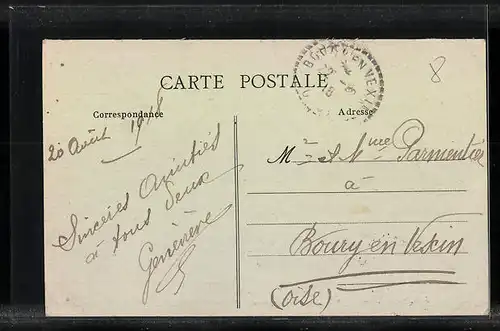 CARTE POSTALE
Correspondance
Adresse
BOURY EN VEXIN
18
8
20 Août 1918
Sincères Amitiés
à tous deux
Geneviève
Mr et Mme Parmentier
à
Boury en Vexin
(Oise)